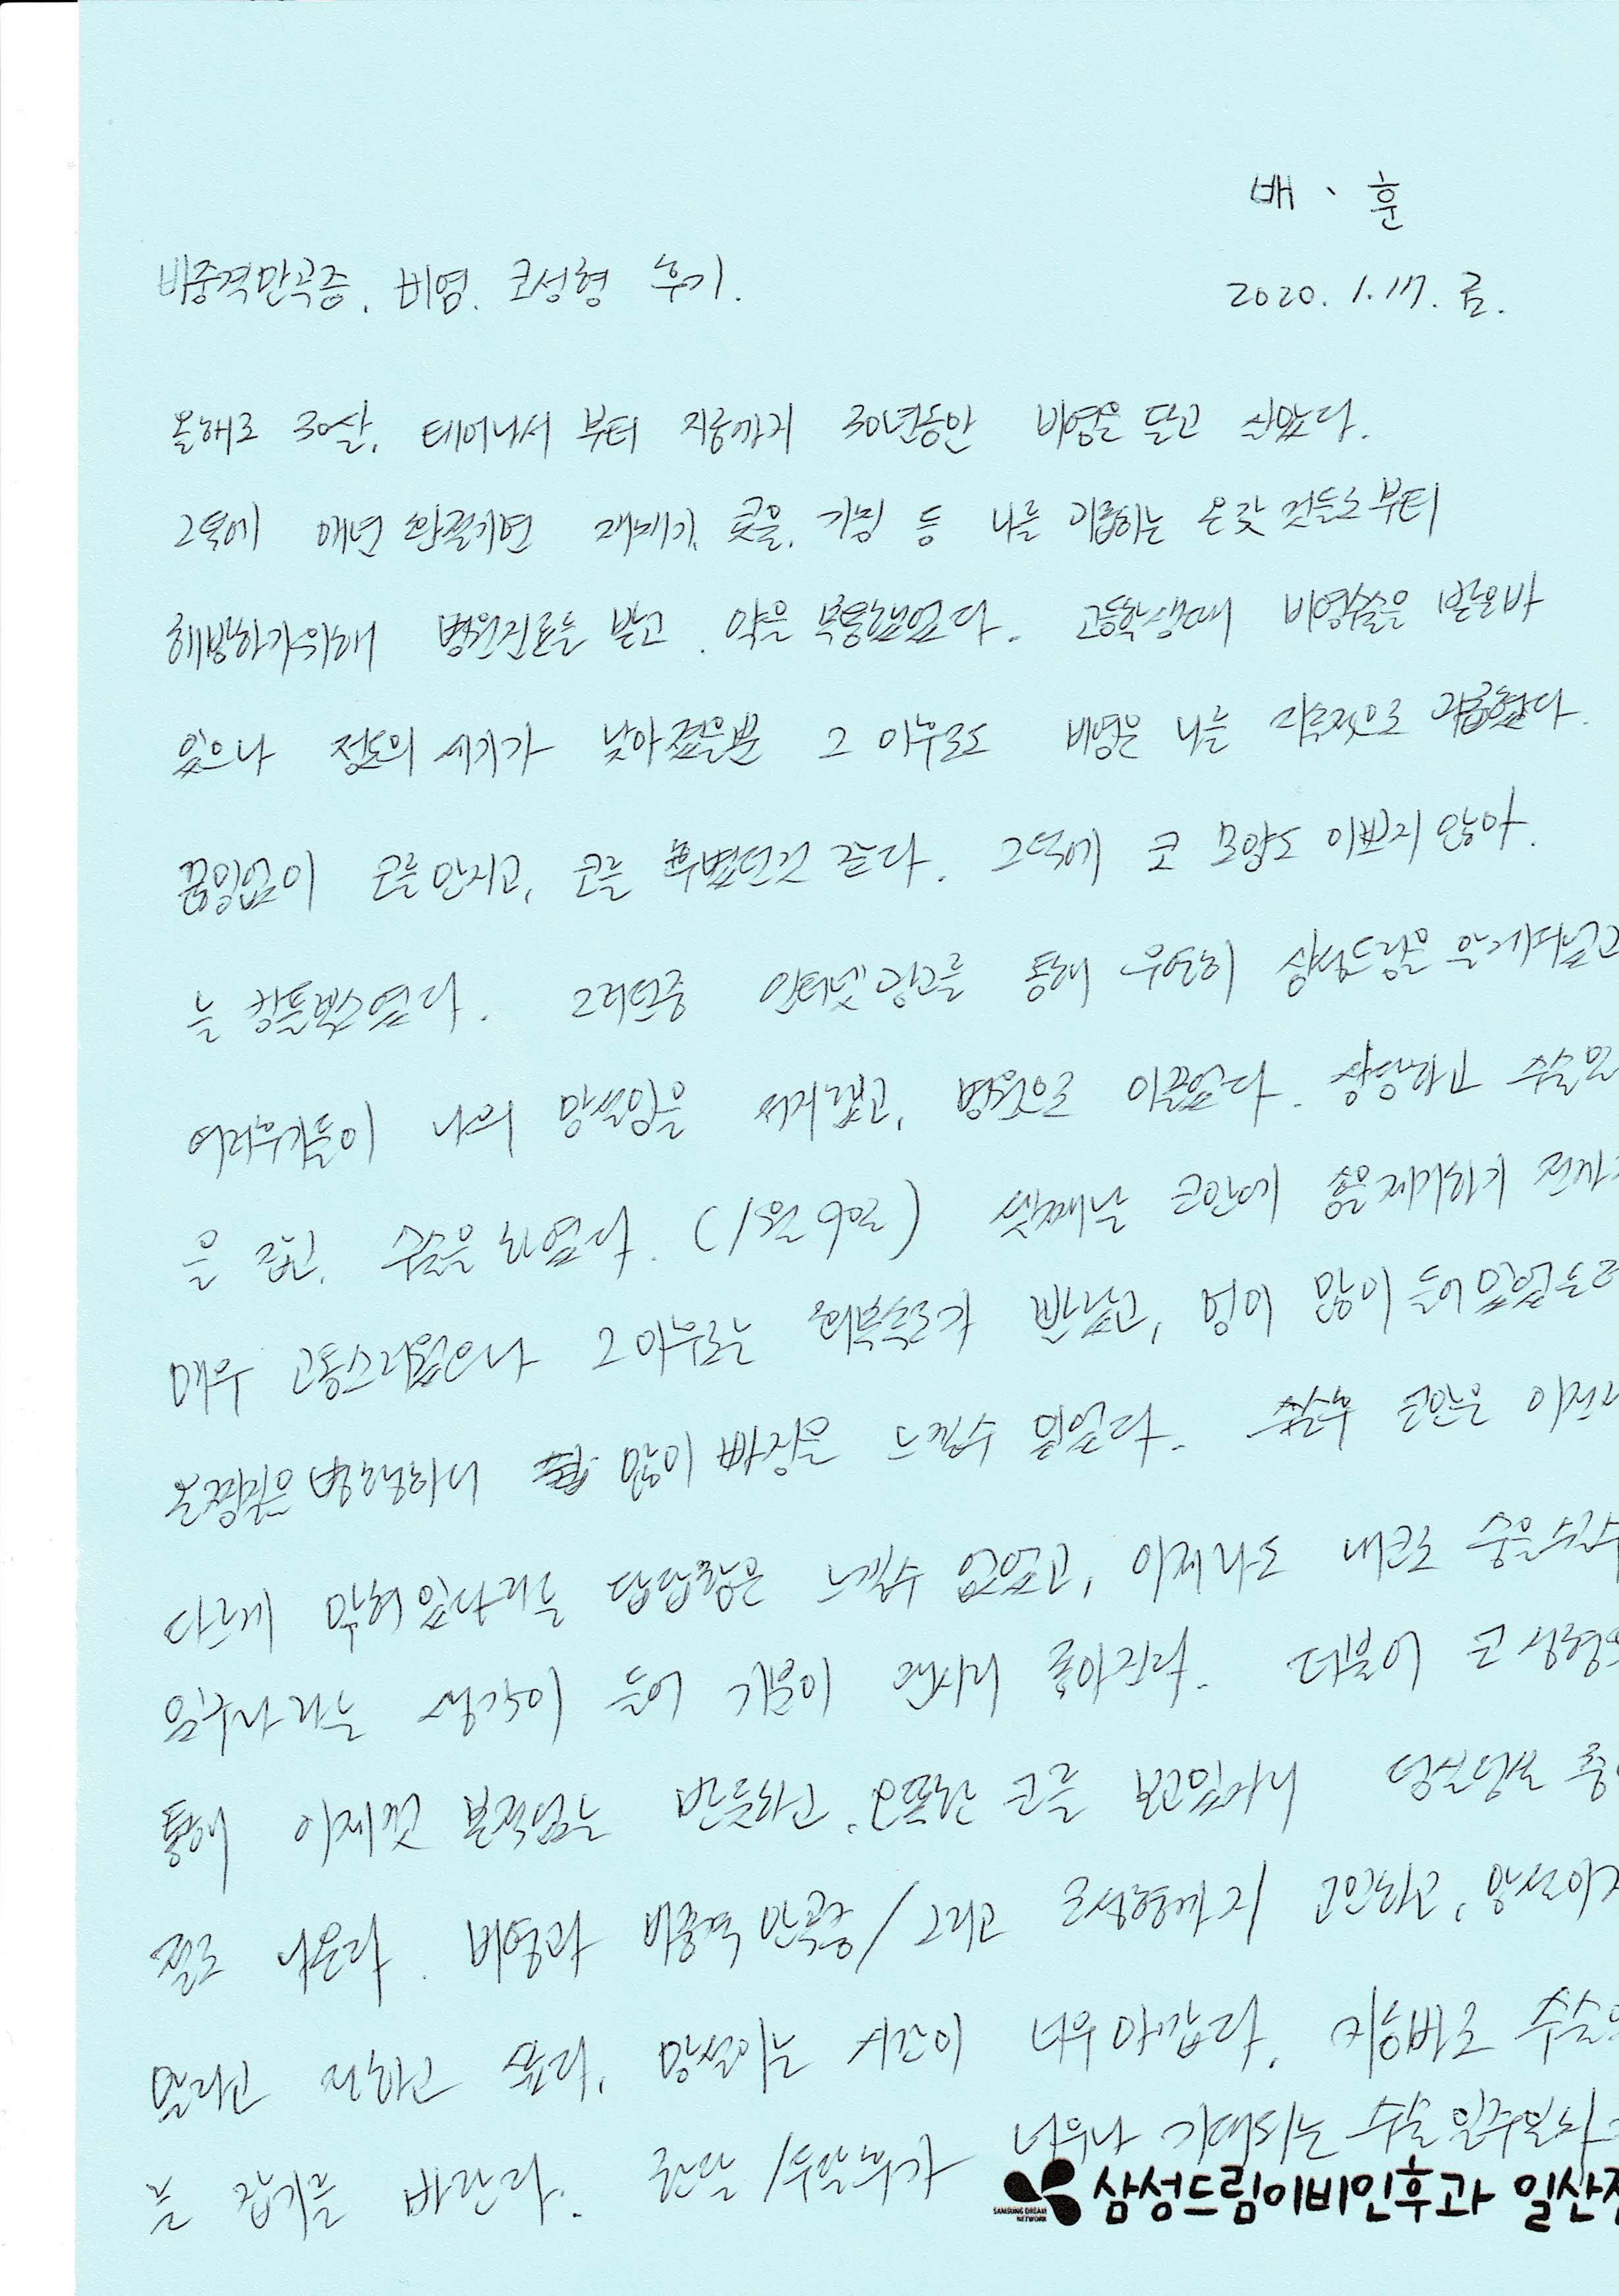 배 、 훈
비중격만곡증. 비염. 코성형 후기.
2020. 1. 17. 금.
올해로 30살. 태어나서 부터 지금까지 30년동안 비염을 달고 살았다.
그덕에 매년 환절기면 재채기, 콧물, 기침 등 나를 괴롭히는 온갖 것들로부터
해방하기위해 병원진료를 받고. 약을 복용했었다. 고등학생때 비염수술을 받은바
있으나 정도의 세기가 낮아졌을뿐 그 이후로도 비염은 나를 지속적으로 괴롭혔다.
끊임없이 코를 만지고, 코를 부볐던것 같다. 그덕에 코 모양도 이쁘지 않아.
늘 힘들었었다. 그러던중 인터넷 광고를 통해 우연히 삼성드림을 알게되었고
여러후기들이 나의 망설임을 깨주었고, 병원으로 이끌었다. 상담하고 수술
을 잡고. 수술을 하였다. (1월 9일) 솜을제거하기 전까
매우 고통스러웠으나 그이후로는 회복속도가 빨랐고, 멍이 많이 들어있었으므로
많이 빠짐을 느낄수 있었다. 수술후 코안은 이전
다르게 막혀있다라는 답답함은 느낄수 없었고, 이제라도 내코로 숨을쉴수
있구나라는 생각이 들어 기분이 괜시리 좋아진다. 더불어 코성형
통해 이제껏 만족하고, 오똑한 코를 보고있자니 덩실덩실 춤
절로 나온다. 비염과 비중격만곡증/그리고 코성형까지 고민하고, 망설이
말라고 전하고 싶다. 망설이는 시간이 너무아깝다. 지금바로 수술
를 잡기를 바란다. 한달/두달후가 너무나 기대되는 수술 일주일차
SAMSUNG DREAM NETWORK 삼성드림이비인후과 일산